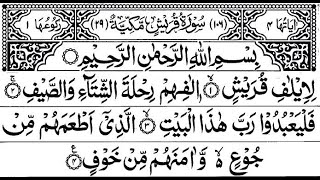 اٰیَاتُهَا ٤ (١٠٦) سُوْرَةُ قُرَيْشٍ مَّكِّيَّةٌ (٢٩) رُكُوْعُهَا ١
بِسْمِ اللّٰهِ الرَّحْمٰنِ الرَّحِيْمِ
لِاِيْلٰفِ قُرَيْشٍ ۙ﴿١﴾ اٖلٰفِهِمْ رِحْلَةَ الشِّتَآءِ وَالصَّيْفِ ۚ﴿٢﴾
فَلْيَعْبُدُوْا رَبَّ هٰذَا الْبَيْتِ ۙ﴿٣﴾ الَّذِيْٓ اَطْعَمَهُمْ مِّنْ
جُوْعٍ ۙ وَّاٰمَنَهُمْ مِّنْ خَوْفٍ ﴿٤﴾